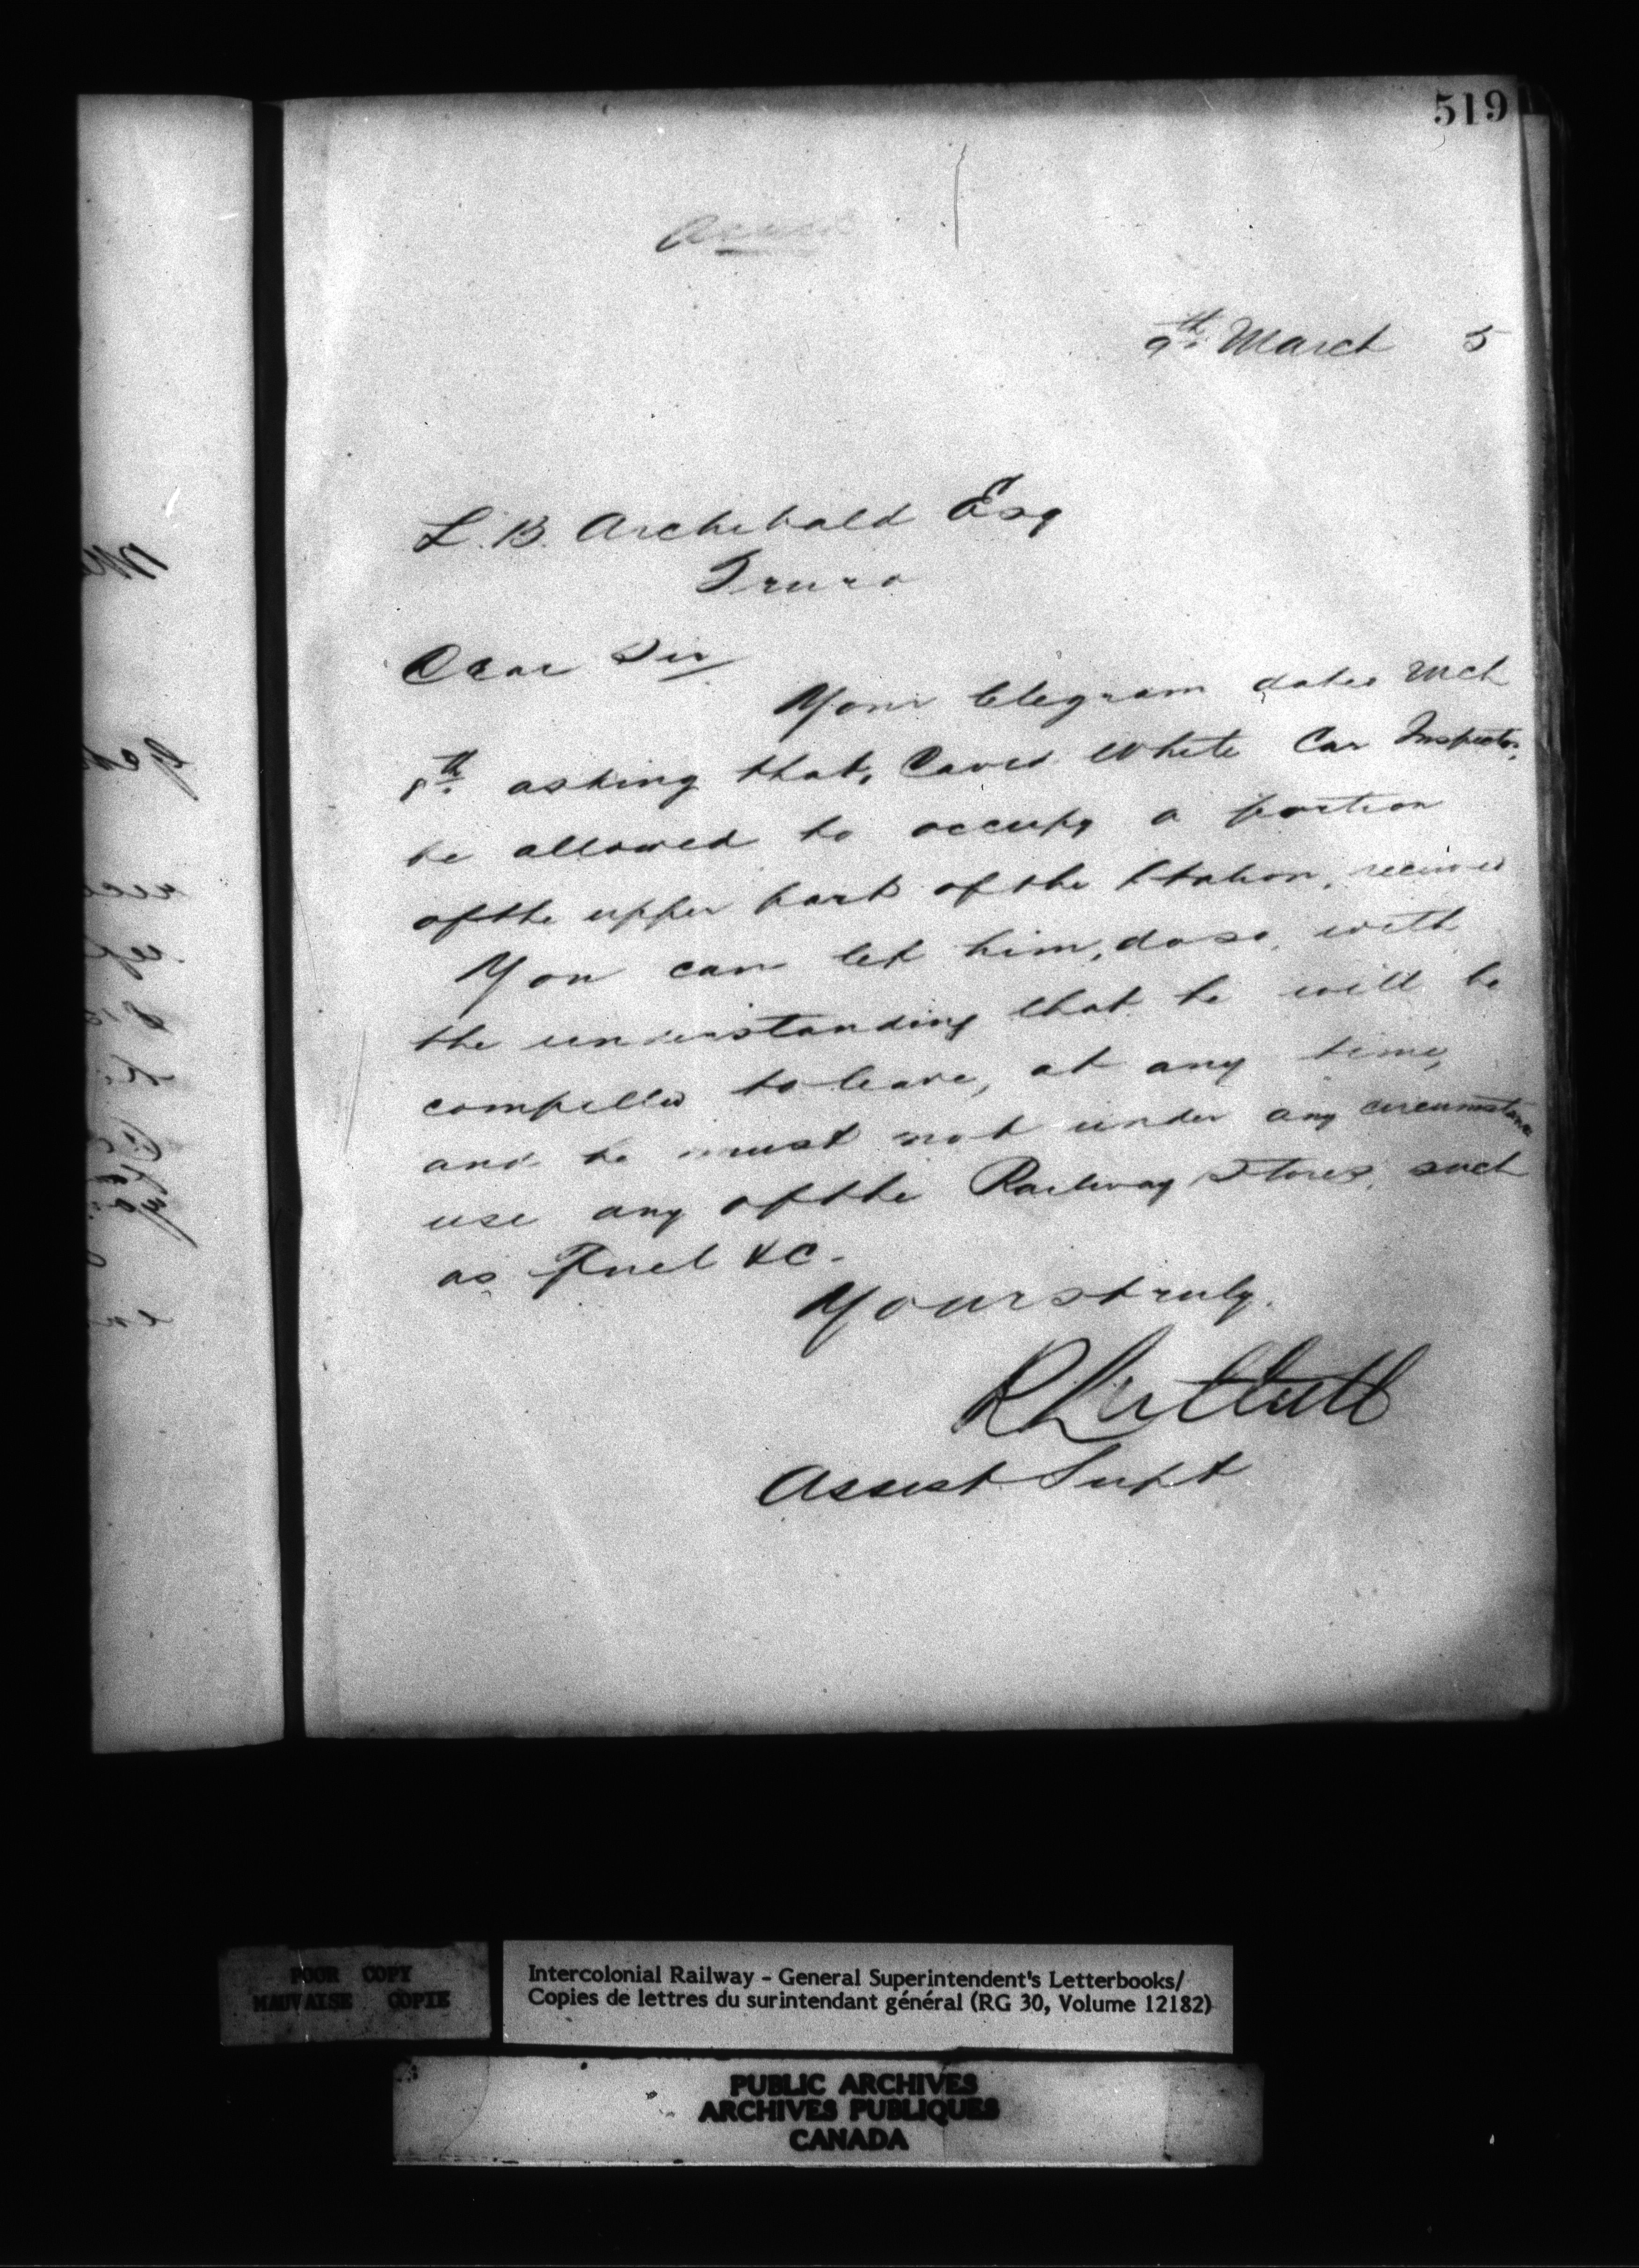 519
9th March 5
L. B. Archibald Esq
Truro
Dear Sir
Your telegram dated Mch
8th asking that, David White Car Inspector,
be allowed to occupy a portion
of the upper part of the Station, received
You can let him, do so, with
the understanding that he will be
compelled to leave, at any time,
and he must not under any circumstance
use any of the Railway Stores, such
as Fuel &C.
Yours truly.
R Luttrell
Assist Supt
POOR COPY
MAUVAISE COPIE
Intercolonial Railway - General Superintendent's Letterbooks/
Copies de lettres du surintendant général (RG 30, Volume 12182)
PUBLIC ARCHIVES
ARCHIVES PUBLIQUES
CANADA